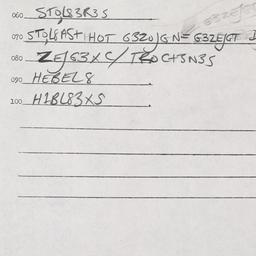 060 STOL83R3S
070 STOL8AST HOT G3ZOJGN= G3ZEJGT
080 ZEJG3XC/TROC+3N3S
090 HEBEL8
100 H1BL83XS